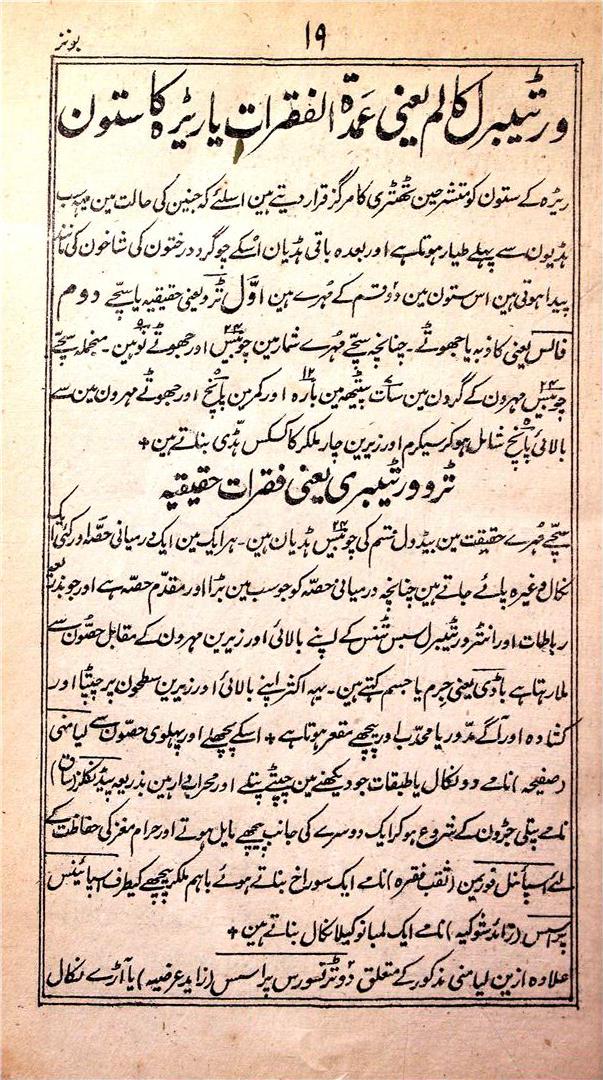 بونز
۱۹
ورٹیبرل کالم یعنی عمدۃ الفقرات یا ریڑہ کا ستون
ریڑہ کے ستون کو متشرحین ٹھٹری کا مرکز قرار دیتے ہین اسلئے کہ جنین کی حالت مین یہہ سب
ہڈیون سے پہلے طیار ہوتا ہے اور بعدہ باقی ہڈیان اُسکے چوگرد درختون کی شاخون کی مانند
پیدا ہوتی ہین اس ستون مین دو قسم کے مُہرے ہین اوّل ٹرو یعنی حقیقیہ یا سچّے دوم
فالس یعنی کاذبہ یا جھوٹے۔ چنانچہ سچّے مُہرے شمار مین چوبیس ۲۴ اور جھوٹے نو ۹ ہین۔ منجملہ سچّے
چوبیس ۲۴ مہرون کے گردن مین سات ۷ پیٹھ مین بارہ ۱۲ اور کمر مین پانچ ۵ اور جھوٹے مہرون مین سے
بالائی پانچ ۵ شامل ہو کر سیکرم اور زیرین چار ملکر کاکسکس ہڈی بناتے ہین +
ٹرو ورٹیبری یعنی فقرات حقیقیہ
سچّے مُہرے حقیقت مین بیڈول قسم کی چوبیس ۲۴ ہڈیان ہین۔ ہر ایک مین ایک درمیانی حصّہ اور کئی ایک
نکال وغیرہ پائے جاتے ہین چنانچہ درمیانی حصّہ کو جو سب مین بڑا اور مقدّم حصّہ ہے اور جو بذریعہ
رباطات اور انٹرورٹیبرل سبس ٹنس کے اپنے بالائی اور زیرین مہرون کے مقابل حصّون سے
ملا رہتا ہے باڈی یعنی جرم یا جسم کہتے ہین۔ یہہ اکثر اپنے بالائی اور زیرین سطحون پر چپٹا اور
کشادہ اور آگے مدّور یا محدّب اور پیچھے مقعر ہوتا ہے + اسکے پچھلے اور پہلوی حصّون سے لیامنی
(صفیحہ) نامے دو نکال یا طبقات جو دیکھنے مین چپٹے پتلے اور محرابدار ہین بذریعہ پیڈنکلز (ساق)
نامے پتلی جڑون کے شروع ہو کر ایک دوسرے کی جانب پیچھے مایل ہوتے اور حرام مغز کی حفاظت کے
لئے اسپائنل فوریمن (ثقب فقرہ) نامے ایک سوراخ بناتے ہوئے باہم ملکر پیچھے کیطرف سپائینس
پراسس (زائد شوکیہ) نامے ایک لمبا نوکیلا نکال بناتے ہین +
علاوہ ازین لیامنی مذکور کے متعلق دو ٹرنسورس پراسس (زاید عرضیہ) یا آڑے نکال